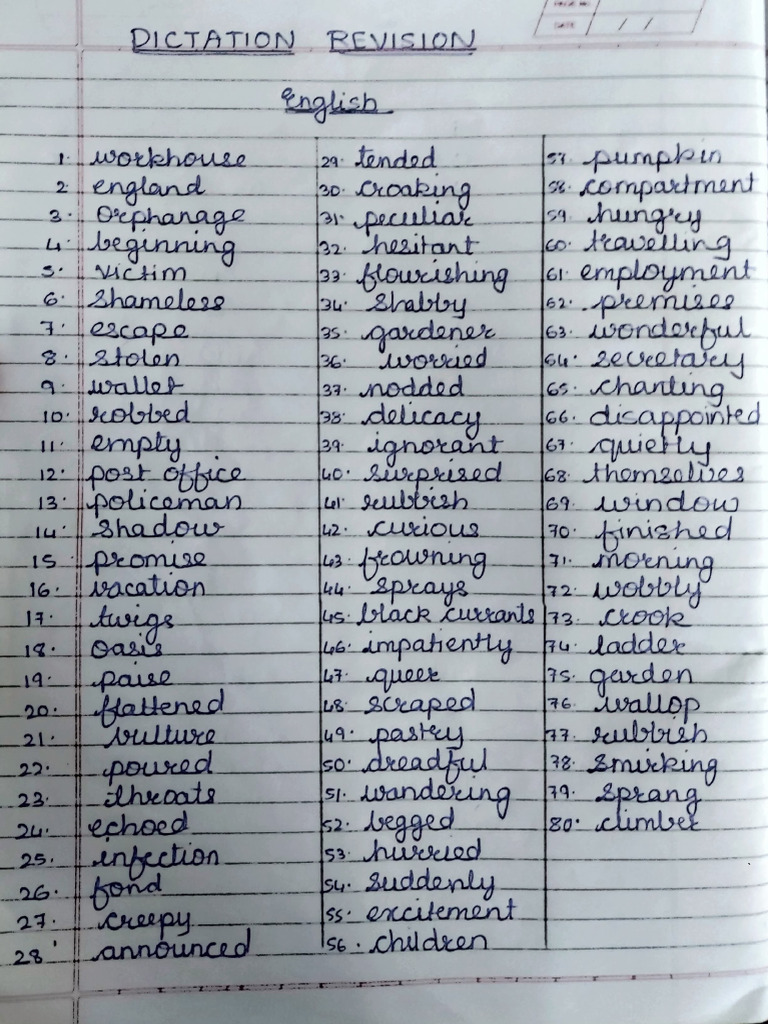 DATE / /
DICTATION REVISION
English
1. workhouse
2. england
3. orphanage
4. beginning
5. victim
6. shameless
7. escape
8. stolen
9. wallet
10. robbed
11. empty
12. post office
13. policeman
14. shadow
15 promise
16. vacation
17. twigs
18. oasis
19. paise
20. flattened
21. vulture
22. poured
23. throats
24. echoed
25. infection
26. fond
27. creepy
28. announced
29. tended
30. croaking
31. peculiar
32. hesitant
33. flourishing
34. shabby
35. gardener
36. worried
37. nodded
38. delicacy
39. ignorant
40. surprised
41. rubbish
42. curious
43. frowning
44. sprays
45. black currants
46. impatiently
47. queer
48. scraped
49. pastry
50. dreadful
51. wandering
52. begged
53. hurried
54. suddenly
55. excitement
56. children
57. pumpkin
58. compartment
59. hungry
60. travelling
61. employment
62. premises
63. wonderful
64. secretary
65. chanting
66. disappointed
67. quietly
68. themselves
69. window
70. finished
71. morning
72. wobbly
73. crook
74. ladder
75. garden
76. wallop
77. rubbish
78. smirking
79. sprang
80. climber